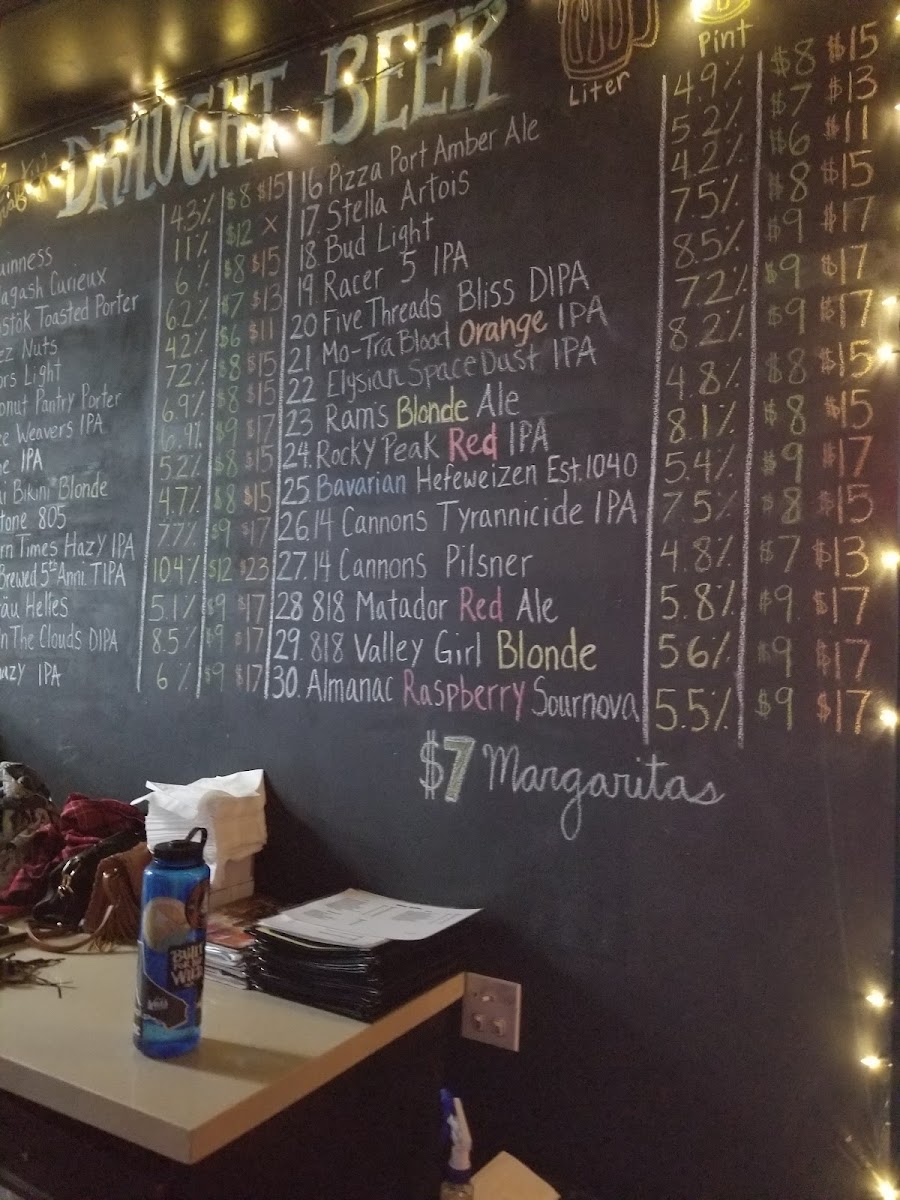 DRAUGHT BEER
Liter
Pint
uinness 4.3% $8 $15
lagash Curieux 11% $12 X
stök Toasted Porter 6% $8 $15
ez Nuts 6.2% $7 $13
ors Light 4.2% $6 $11
onut Pantry Porter 7.2% $8 $15
ee Weavers IPA 6.9% $8 $15
e IPA 6.9% $9 $17
ai Bikini Blonde 5.2% $8 $15
tone 805 4.7% $8 $15
rn Times Hazy IPA 7.7% $9 $17
Brewed 5th Anni. TIPA 10.4% $12 $23
räu Helles 5.1% $9 $17
n The Clouds DIPA 8.5% $9 $17
azy IPA 6% $9 $17
16 Pizza Port Amber Ale 4.9% $8 $15
17. Stella Artois 5.2% $7 $13
18. Bud Light 4.2% $6 $11
19. Racer 5 IPA 7.5% $8 $15
20 Five Threads Bliss DIPA 8.5% $9 $17
21 Mo-Tra Blood Orange IPA 7.2% $9 $17
22 Elysian Space Dust IPA 8.2% $9 $17
23 Ram's Blonde Ale 4.8% $8 $15
24. Rocky Peak Red IPA 8.1% $8 $15
25. Bavarian Hefeweizen Est. 1040 5.4% $9 $17
26. 14 Cannons Tyrannicide IPA 7.5% $8 $15
27. 14 Cannons Pilsner 4.8% $7 $13
28 818 Matador Red Ale 5.8% $9 $17
29. 818 Valley Girl Blonde 5.6% $9 $17
30. Almanac Raspberry Sournova 5.5% $9 $17
$7 Margaritas
BUILT
WILD